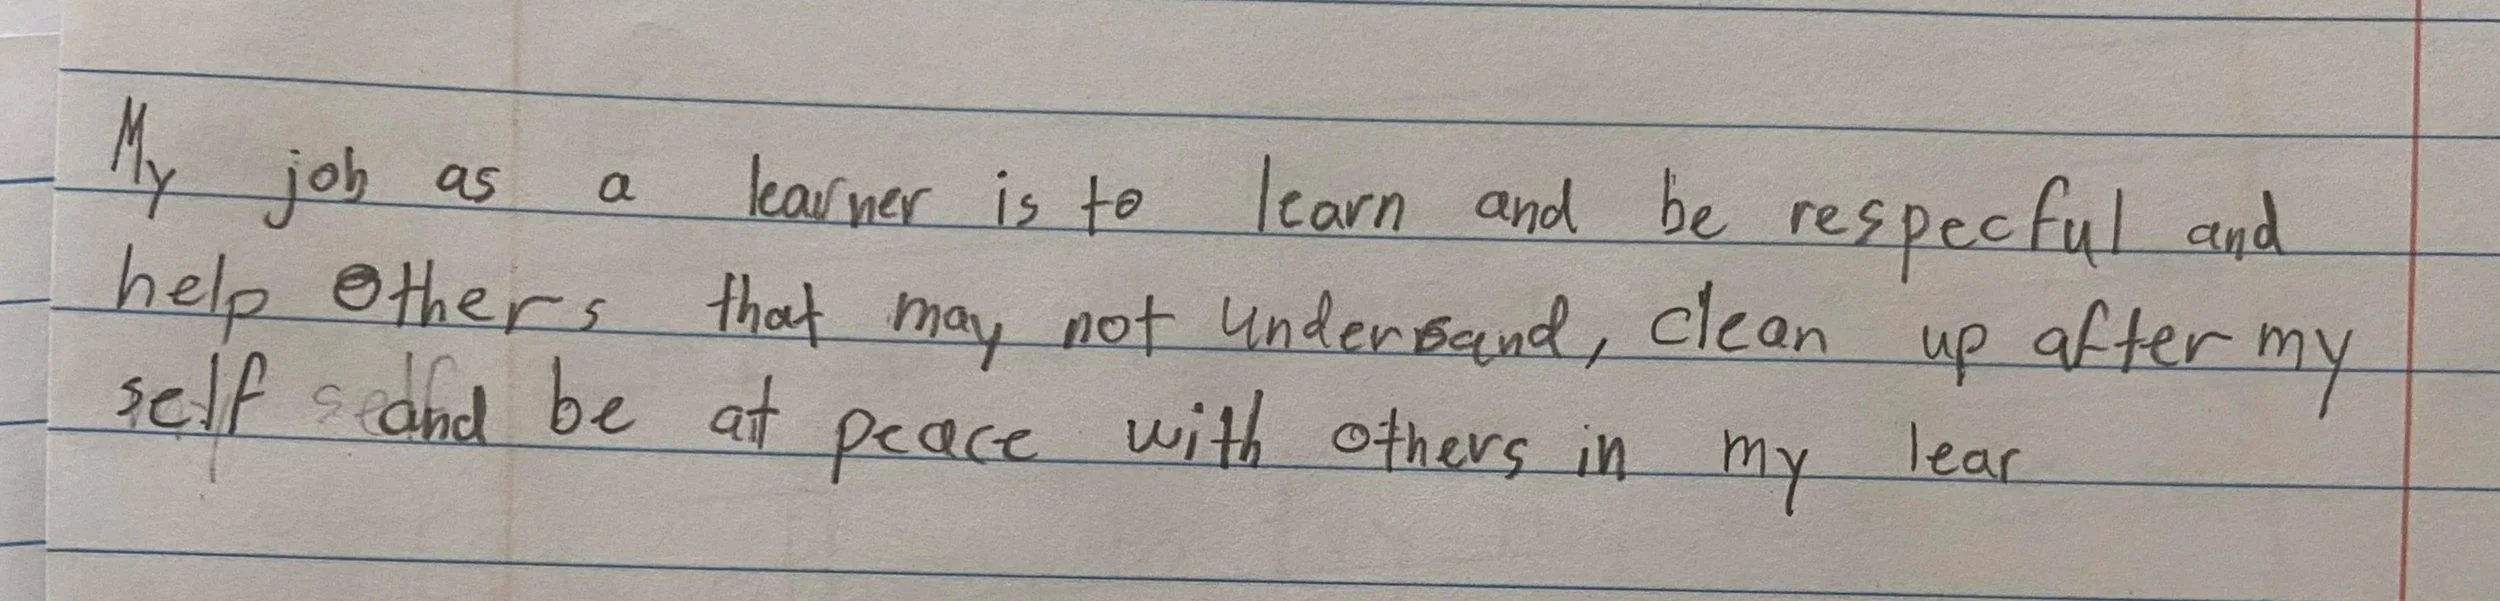 My job as a learner is to learn and be respecful and
help others that may not undersand, clean up after my
self and be at peace with others in my lear